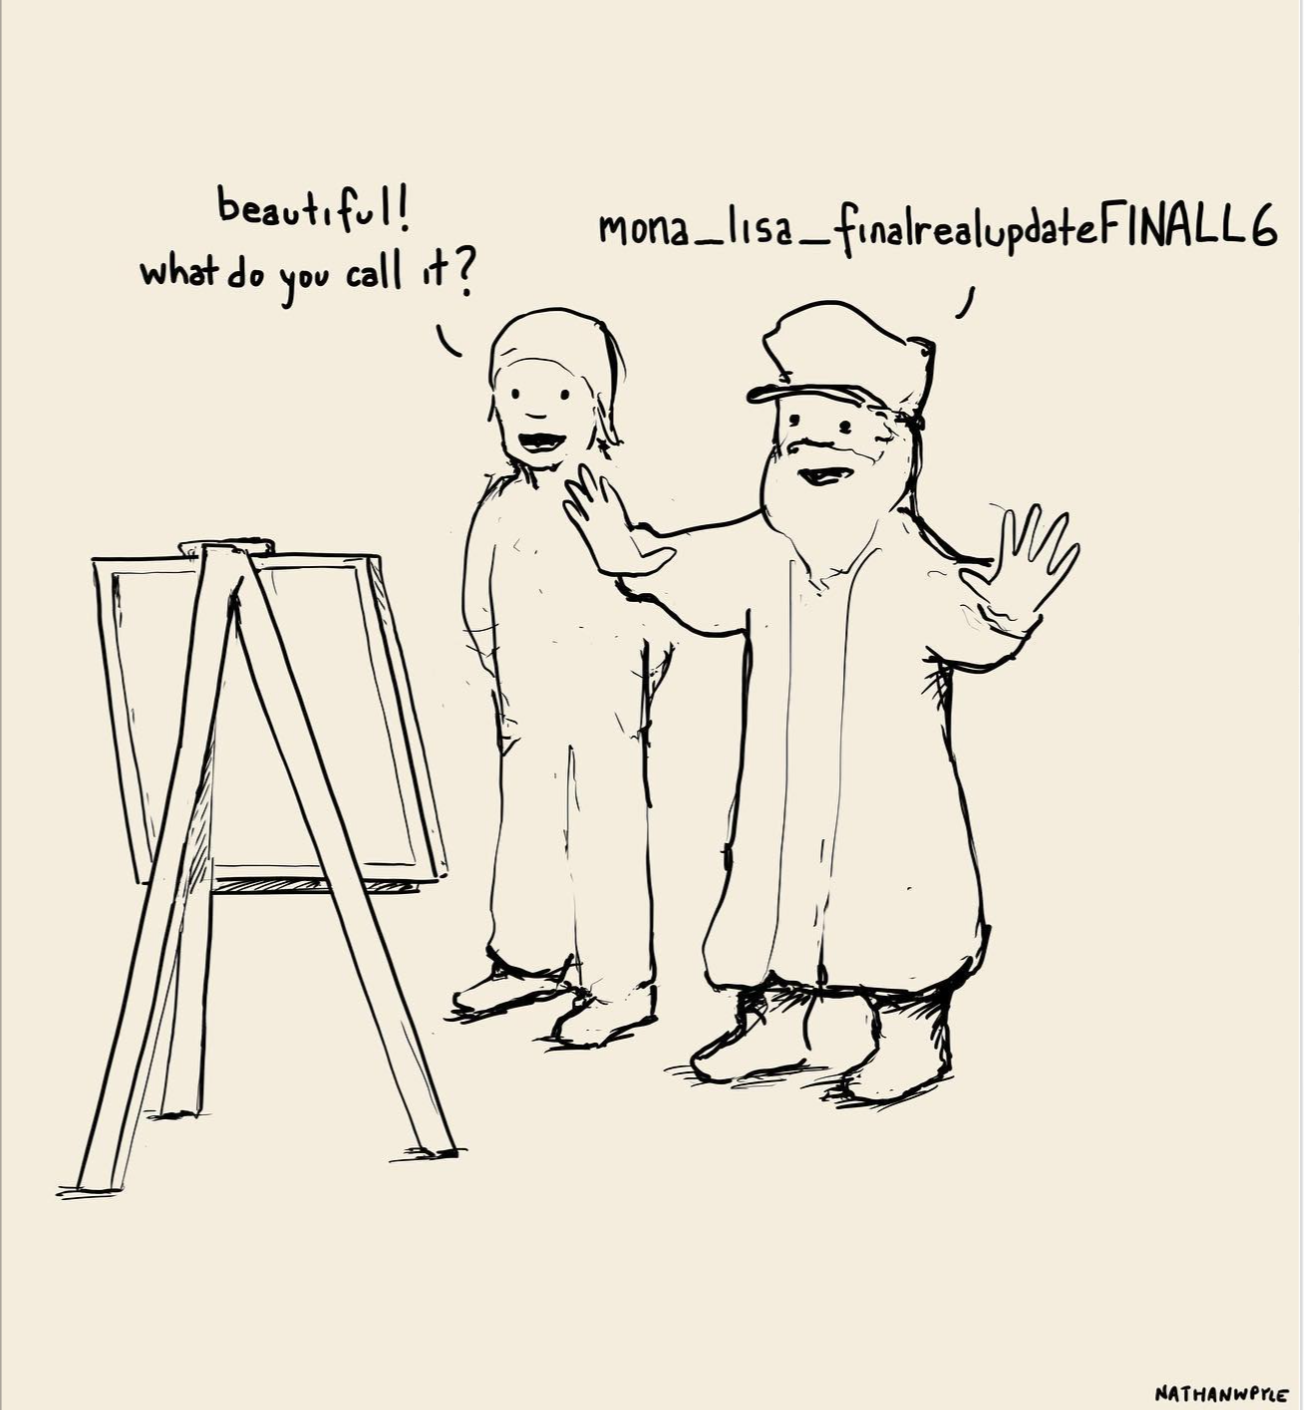 beautiful!
what do you call it?
mona_lisa_finalrealupdateFINALL6
NATHANWPYLE